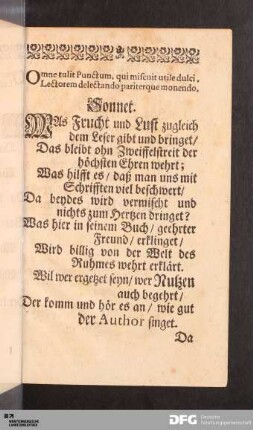 Omne tulit Punctum, qui miscuit utile dulci,
Lectorem delectando pariterque monendo.
Sonnet.
WAs Frucht und Lust zugleich
dem Leser gibt und bringet/
Das bleibt ohn Zweiffelstreit der
höchsten Ehren wehrt;
Was hilfft es/ daß man uns mit
Schrifften viel beschwert/
Da beydes wird vermischt und
nichts zum Hertzen dringet?
Was hier in seinem Buch/ geehrter
Freund/ erklinget/
Wird billig von der Welt des
Ruhmes wehrt erklärt.
Wil wer ergetzet seyn/ wer Nutzen
auch begehrt/
Der komm und hör es an/ wie gut
der Author singet.
Da
DFG
Deutsche
Forschungsgemeinschaft